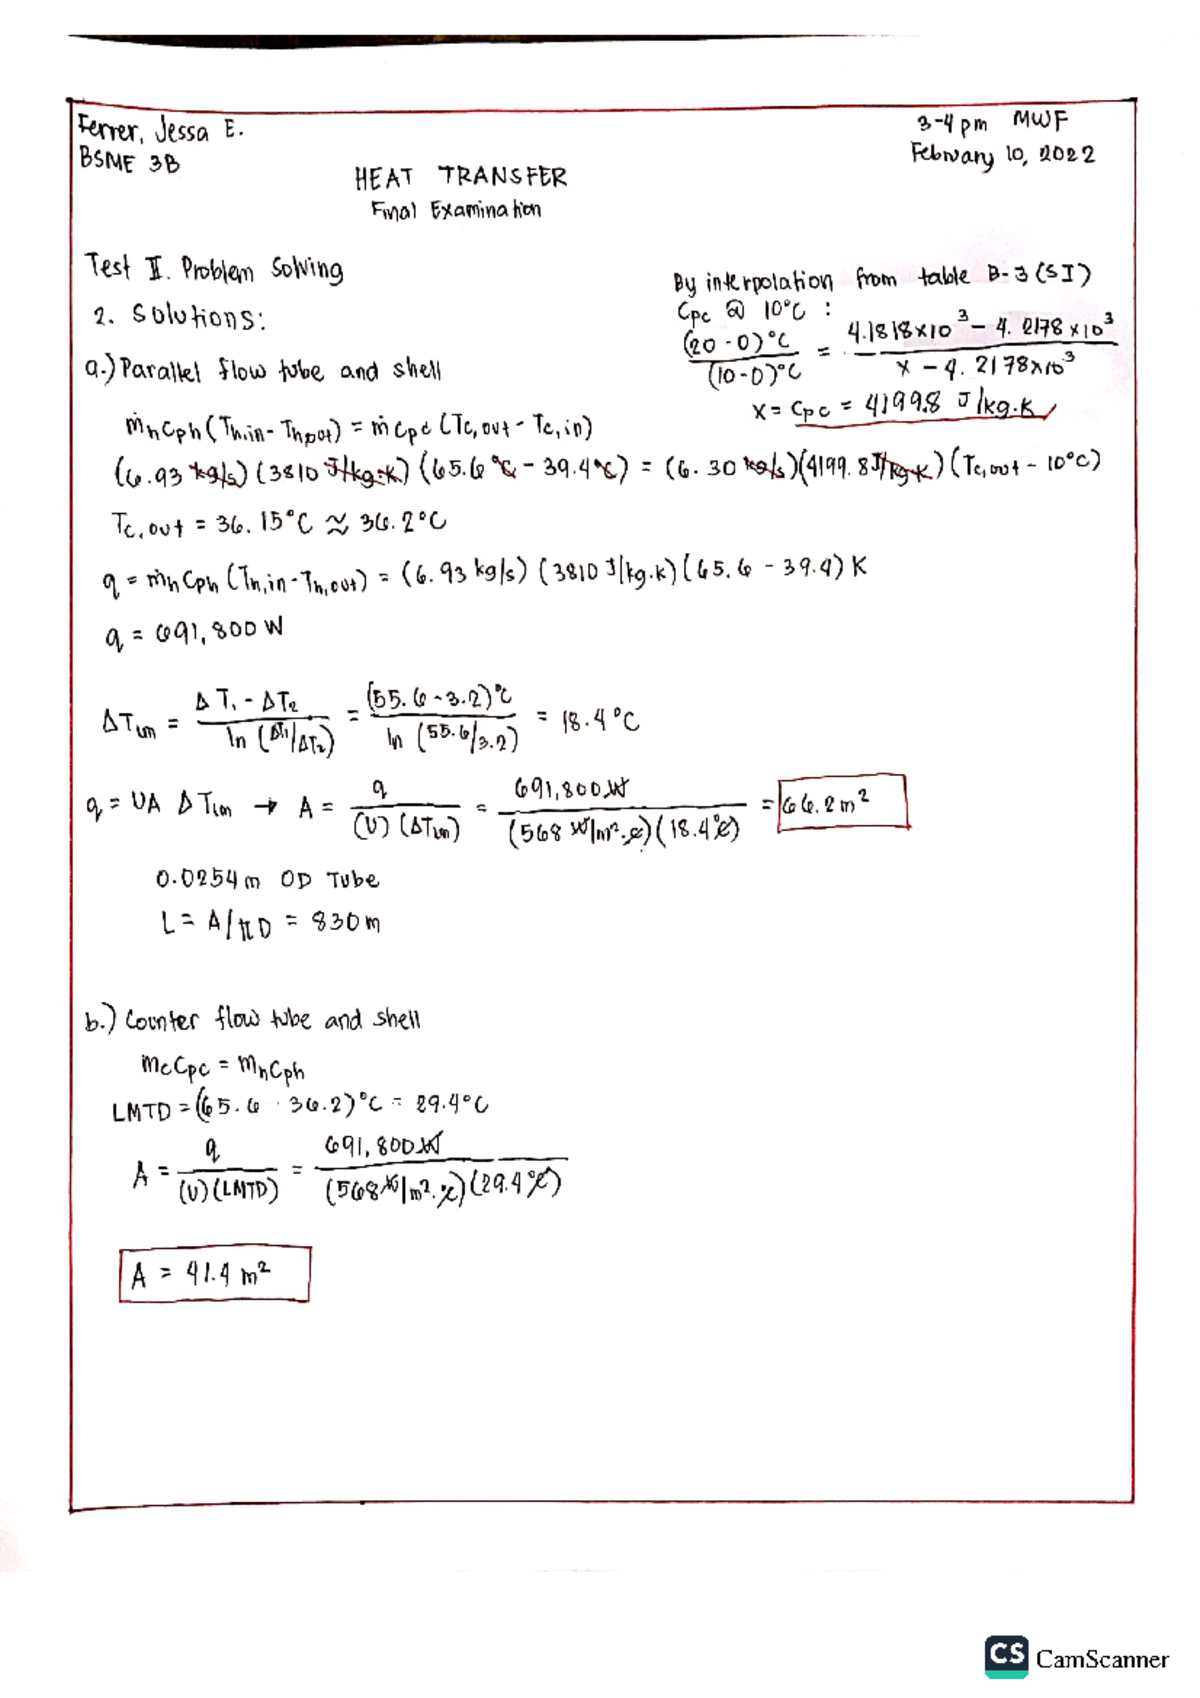 Ferrer, Jessa E.
3-4 pm MWF
BSME 3B
February 10, 2022
HEAT TRANSFER
Final Examination
Test II. Problem Solving
2. Solutions:
By interpolation from table B-3 (SI)
Cpc @ 10°C :
(20-0)°C / (10-0)°C = 4.1818×10³ - 4.2178×10³ / x - 4.2178×10³
x = Cpc = 4199.8 J/kg.K
a.) Parallel flow tube and shell
ṁhCph (Th,in - Th,out) = ṁcCpc (Tc,out - Tc,in)
(6.93 kg/s) (3810 J/kg.K) (65.6°C - 39.4°C) = (6.30 kg/s)(4199.8 J/kg.K) (Tc,out - 10°C)
Tc,out = 36.15°C ≈ 36.2°C
q = ṁh Cph (Th,in - Th,out) = (6.93 kg/s) (3810 J/kg.K) (65.6 - 39.4) K
q = 691,800 W
ΔTlm = ΔT1 - ΔT2 / ln (ΔT1/ΔT2) = (55.6 - 3.2)°C / ln (55.6/3.2) = 18.4°C
q = UA ΔTlm → A = q / (U) (ΔTlm) = 691,800 W / (568 W/m².°C)(18.4°C) = 66.2 m²
0.0254 m OD Tube
L = A/πD = 830 m
b.) Counter flow tube and shell
mcCpc = mhCph
LMTD = (65.6 - 36.2)°C = 29.4°C
A = q / (U)(LMTD) = 691,800 W / (568 W/m².°C)(29.4°C)
A = 41.4 m²
CS CamScanner